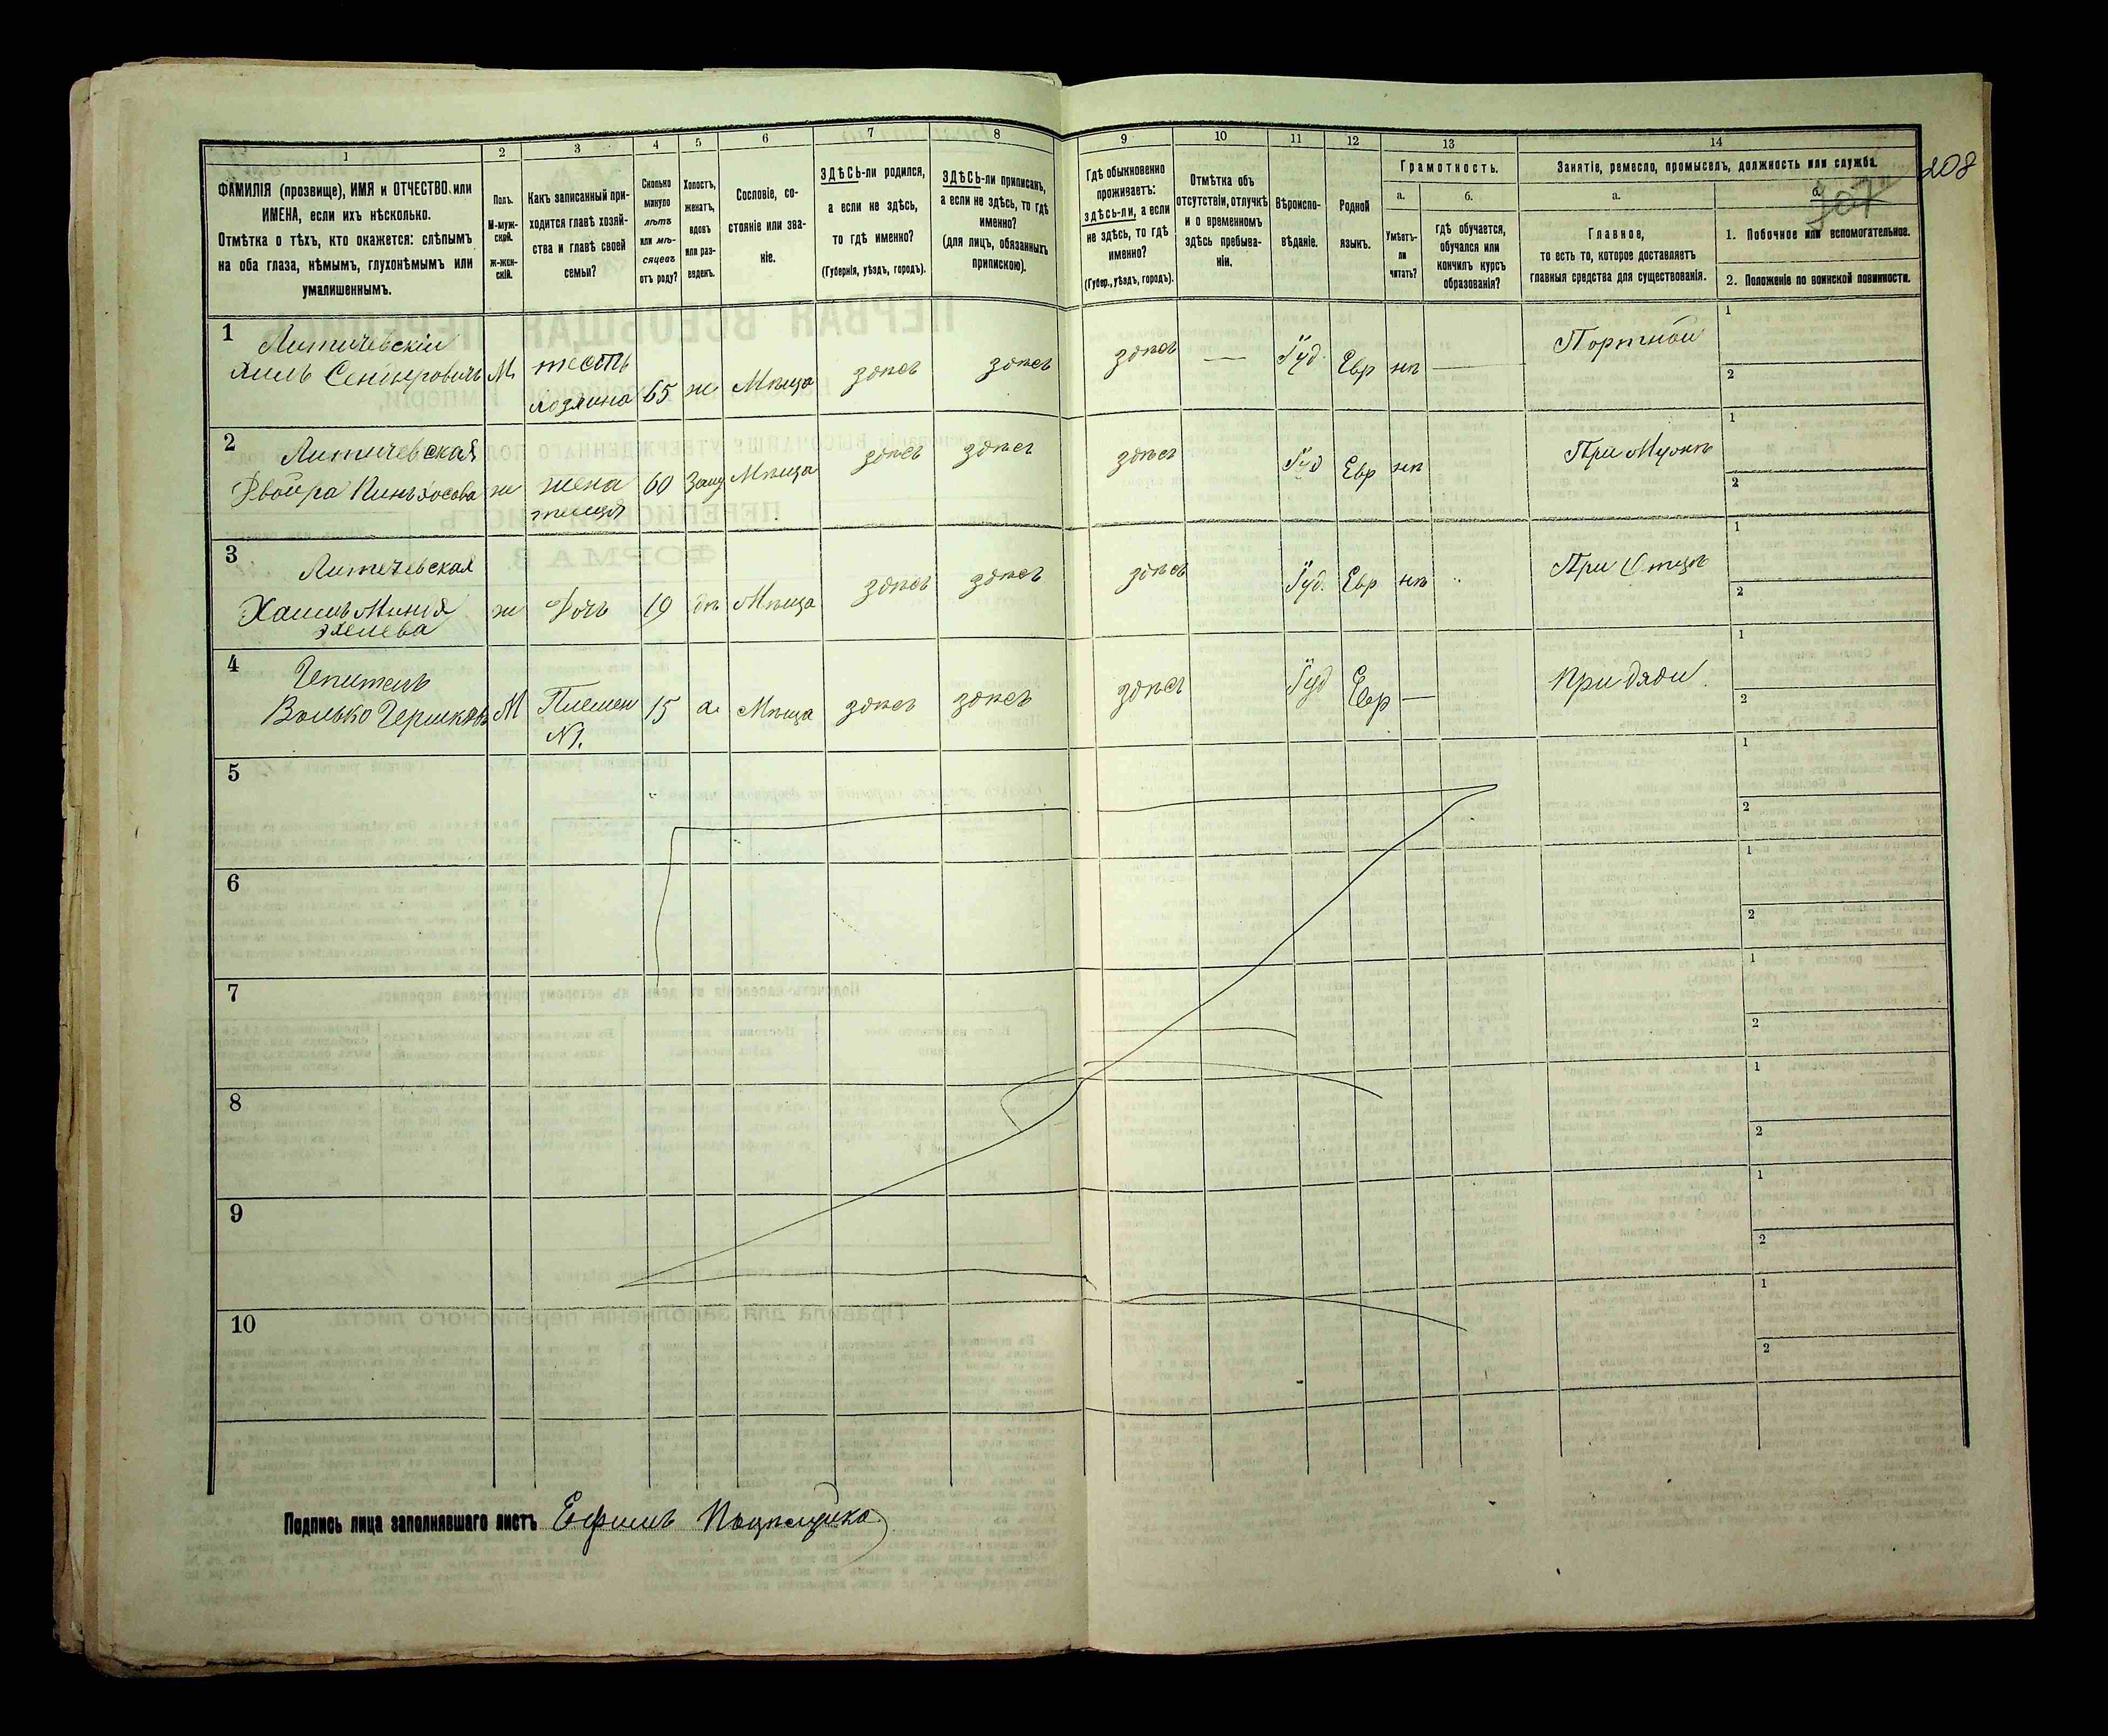 208
1
2
3
4
5
6
7
8
9
10
11
12
13
14
ФАМИЛІЯ (прозвище), ИМЯ и ОТЧЕСТВО или
ИМЕНА, если ихъ нѣсколько.
Отмѣтка о тѣхъ, кто окажется: слѣпымъ
на оба глаза, нѣмымъ, глухонѣмымъ или
умалишеннымъ.
Полъ.
М-муж-
ской.
Ж-жен-
скій.
Какъ записанный при-
ходится главѣ хозяй-
ства и главѣ своей
семьи?
Сколько
минуло
лѣтъ
или мѣ-
сяцевъ
отъ роду?
Холостъ,
женатъ,
вдовъ
или раз-
веденъ.
Сословіе, со-
стояніе или зва-
ніе.
ЗДѢСЬ-ли родился,
а если не здѣсь,
то гдѣ именно?
(Губернія, уѣздъ, городъ).
ЗДѢСЬ-ли приписанъ,
а если не здѣсь, то гдѣ
именно?
(для лицъ, обязанныхъ
припискою).
Гдѣ обыкновенно
проживаетъ:
здѣсь-ли, а если
не здѣсь, то гдѣ
именно?
(Губер., уѣздъ, городъ).
Отмѣтка объ
отсутствіи, отлучкѣ
и о временномъ
здѣсь пребыва-
ніи.
Вѣроиспо-
вѣданіе.
Родной
языкъ.
Грамотность.
а.
Умѣетъ-
ли
читать?
б.
гдѣ обучается,
обучался или
кончилъ курсъ
образованія?
Занятіе, ремесло, промыселъ, должность или служба.
а.
Главное,
то есть то, которое доставляетъ
главныя средства для существованія.
1. Побочное или вспомогательное.
2. Положеніе по воинской повинности.
1
Литичевскій
М
тесть
хозяина
65
ж
Мѣща
здѣсь
здѣсь
здѣсь
—
Іуд.
Евр
нѣ
—
Портной
1
2
2
Литичевская
Двойра Пинхосова
ж
жена
60
Заму
Мѣща
здѣсь
здѣсь
здѣсь
Іуд
Евр
нѣ
При Мужѣ
1
2
3
Литичевская
ж
Дочь
19
дѣ
Мѣща
здѣсь
здѣсь
здѣсь
Іуд.
Евр
нѣ
При Отцѣ
1
2
4
Волько Гершковъ
М
Племен
№1.
15
Мѣща
здѣсь
здѣсь
здѣсь
Іуд
Евр
—
При дяди
1
2
5
1
2
6
1
2
7
1
2
8
1
2
9
1
2
10
1
2
Подпись лица заполнявшаго листъ Ефимъ